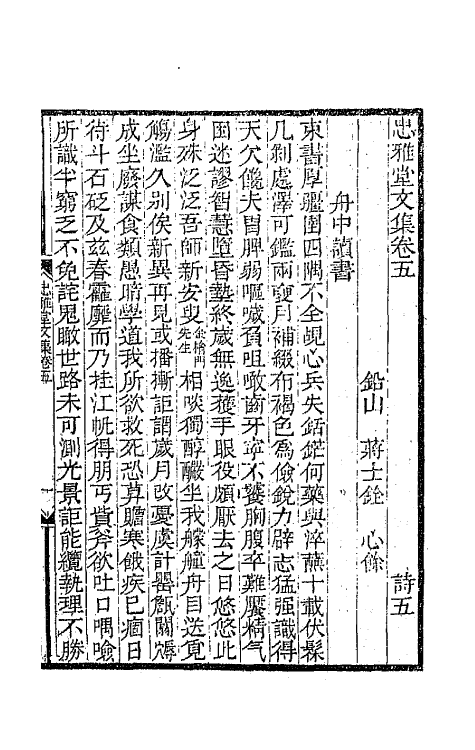 忠雅堂文集卷五 詩五
鉛山 蔣士銓 心餘
舟中讀書
束書厚疆圉四隅不全覬心兵失銛鋩何藥與淬蘸十載伏髹
几剎處澤可鑑兩月補綴布褐色爲儉銳力辟志猛强識得
天欠儳夫胃脾弱嘔噦負咀噉齒牙寧不饕胸腹卒難饜精气
固迷謬智慧墮昏墊終歲無逸獲手眼役頗厭去之日悠悠此
身殊泛泛吾師新安叟金檜門先生相啖獨醇釅坐我艨艟舟目送
觴濫久別俟新異再見或播詎謂歲月改憂虞計罌甔關
成坐廢謀食類愚暗學道我所欲救死恐莫贍寒餓疾巳痼日
待斗石砭及茲春靡而乃挂江帆得朋丐貲斧欲吐口喁噞
所識半窮乏不免詫鬼瞰世路未可測光景詎能纜執理不勝
忠雅堂文集卷五 一